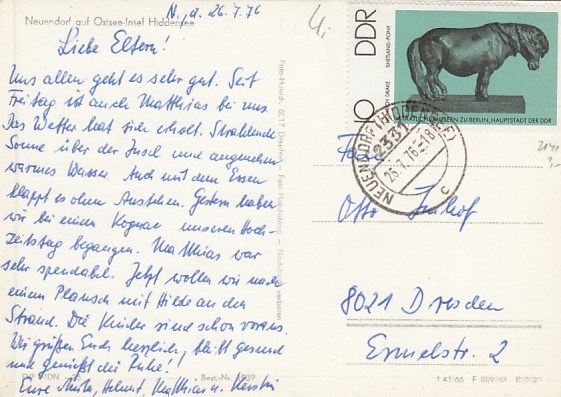 N., d. 26.7.76
Neuendorf auf Ostsee-Insel Hiddensee
Liebe Eltern!
Uns allen geht es sehr gut. Seit
Freitag ist auch Matthias bei uns.
Das Wetter hat sich erholt. Strahlende
Sonne über der Insel und angenehm
warmes Wasser. Auch mit dem Essen
klappt es ohne Anstehen. Gestern haben
wir bei einem Kognac unseren Hoch-
zeitstag begangen. Matthias war
sehr spendabel. Jetzt wollen wir nach
einem Plausch mit Hilde an den
Strand. Die Kinder sind schon voraus.
Wir grüßen Euch herzlich, bleibt gesund
und genießt die Ruhe!
Eure Helmut, Matthias u. Kerstin
Best.-Nr.
DDR
10
SHETLAND-PONY
STAATLICHE MUSEEN ZU BERLIN, HAUPTSTADT DER DDR
NEUENDORF (HIDDENSEE)
2337
26.7.76-18
c
Otto Imhof
8021 Dresden
Ermelstr. 2